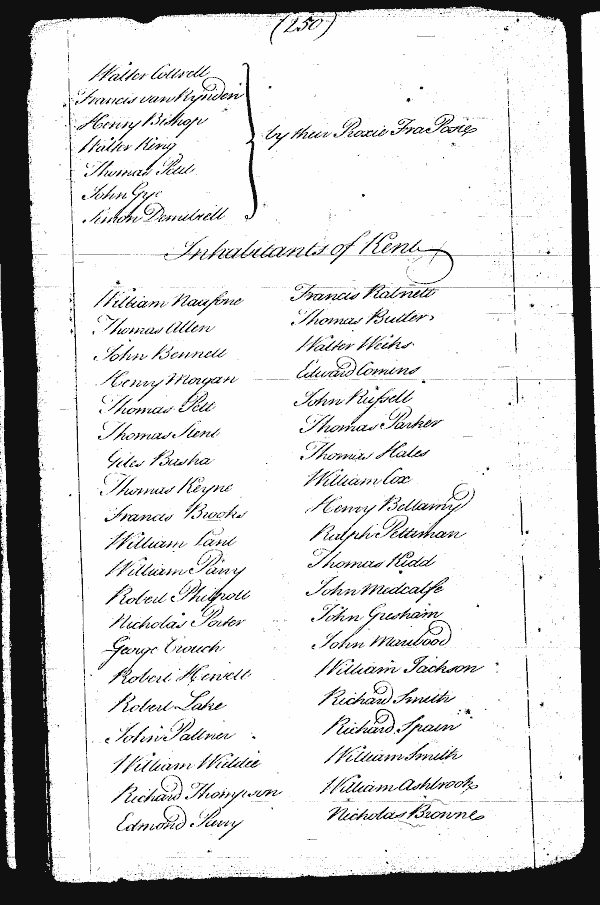 (250)
Walter Cottrell
Francis van Rynden
Henry Bishop
Walter King
Thomas Pett
John Gye
Simon Demetrell
by their Proxie Fra Poxie
Inhabitants of Kent
William
Thomas Allen
John Bennett
Henry Morgan
Thomas Pett
Thomas Kent
Giles Basha
Thomas Keyne
Francis Brooks
William Vant
William Parry
Robert
Nicholas Porter
George Crouch
Robert Hewett
Robert Lake
John Pattner
William Widdie
Richard Thompson
Edmond Parry
Francis Ratnett
Thomas Butler
Walter Weeks
Edward Comens
John Russell
Thomas Parker
Thomas Hales
William Cox
Henry Bellamy
Ralph Pettiman
Thomas Kidd
John Medcalfe
John Gresham
John Marwood
William Jackson
Richard Smith
Richard Spain
William Smith
William Ashbrooke
Nicholas Browne